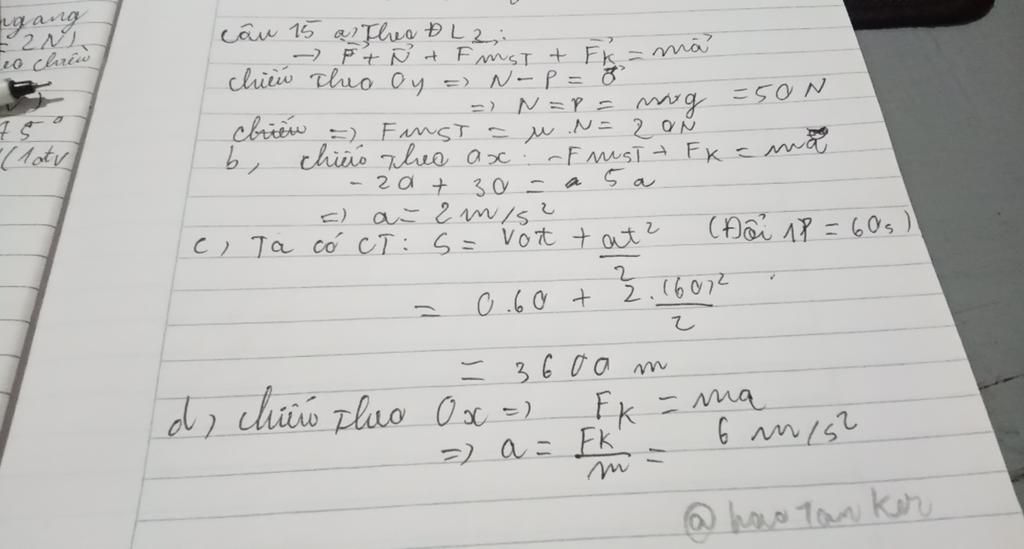 ngang
= 2N)
eo chiều
45°
(lấy
Câu 15 a, Theo ĐL 2:
→ P⃗ + N⃗ + F⃗msT + F⃗k = ma⃗
chiếu Theo Oy => N - P = 0
=> N = P = mg = 50 N
chiếu => FmsT = μ.N = 20N
b, chiếu Theo ox: -FmsT + Fk = ma
- 20 + 30 = 5a
=> a = 2m/s²
c, Ta có CT: S = Vot + at²/2 (Đổi 1P = 60s)
= 0.60 + 2.(60)²/2
= 3600 m
d, chiếu Theo Ox => Fk = ma
=> a = Fk/m = 6 m/s²